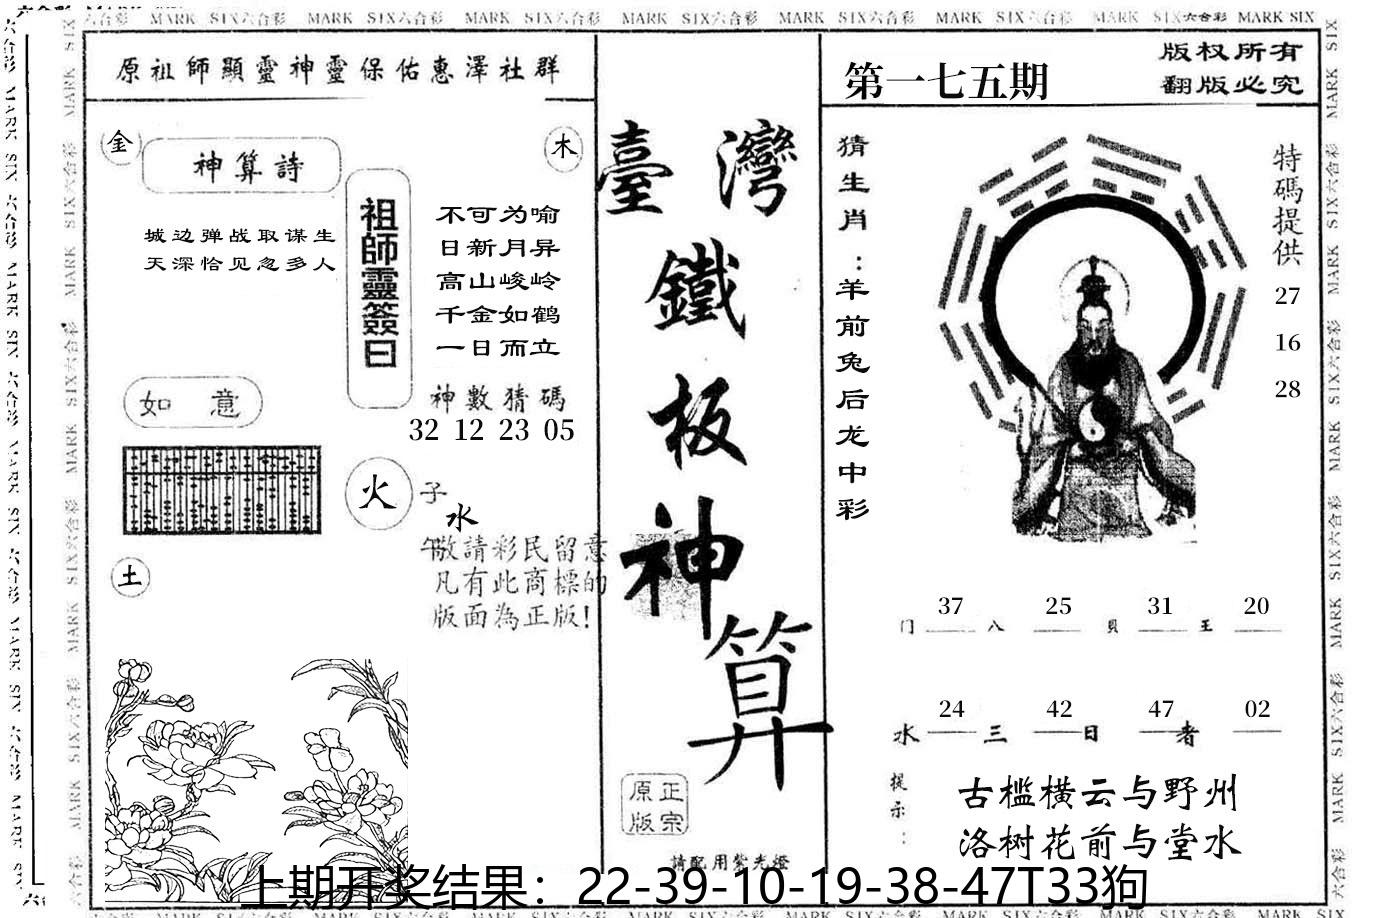 MARK SIX六合彩 MARK SIX六合彩 MARK SIX六合彩 MARK SIX六合彩 MARK SIX六合彩 MARK SIX六合彩 MARK SIX六合彩 MARK SIX
原祖師顯靈神靈保佑惠澤社群
金
神算詩
木
城边弹战取谋生
天深恰见忽多人
祖師靈簽曰
不可为喻
日新月异
高山峻岭
千金如鹤
一日而立
神數猜碼
32 12 23 05
如 意
火
子
水
午
敬請彩民留意
凡有此商標的
版面為正版!
土
臺灣
鐵
板
神
算
原正
版宗
請配用紫光燈
第一七五期
版权所有
翻版必究
猜生肖：羊前兔后龙中彩
特碼提供
27
16
28
37 25 31 20
门 八 貝 王
24 42 47 02
水 三 日 者
提示：
古槛横云与野州
洛树花前与堂水
上期开奖结果：22-39-10-19-38-47T33狗